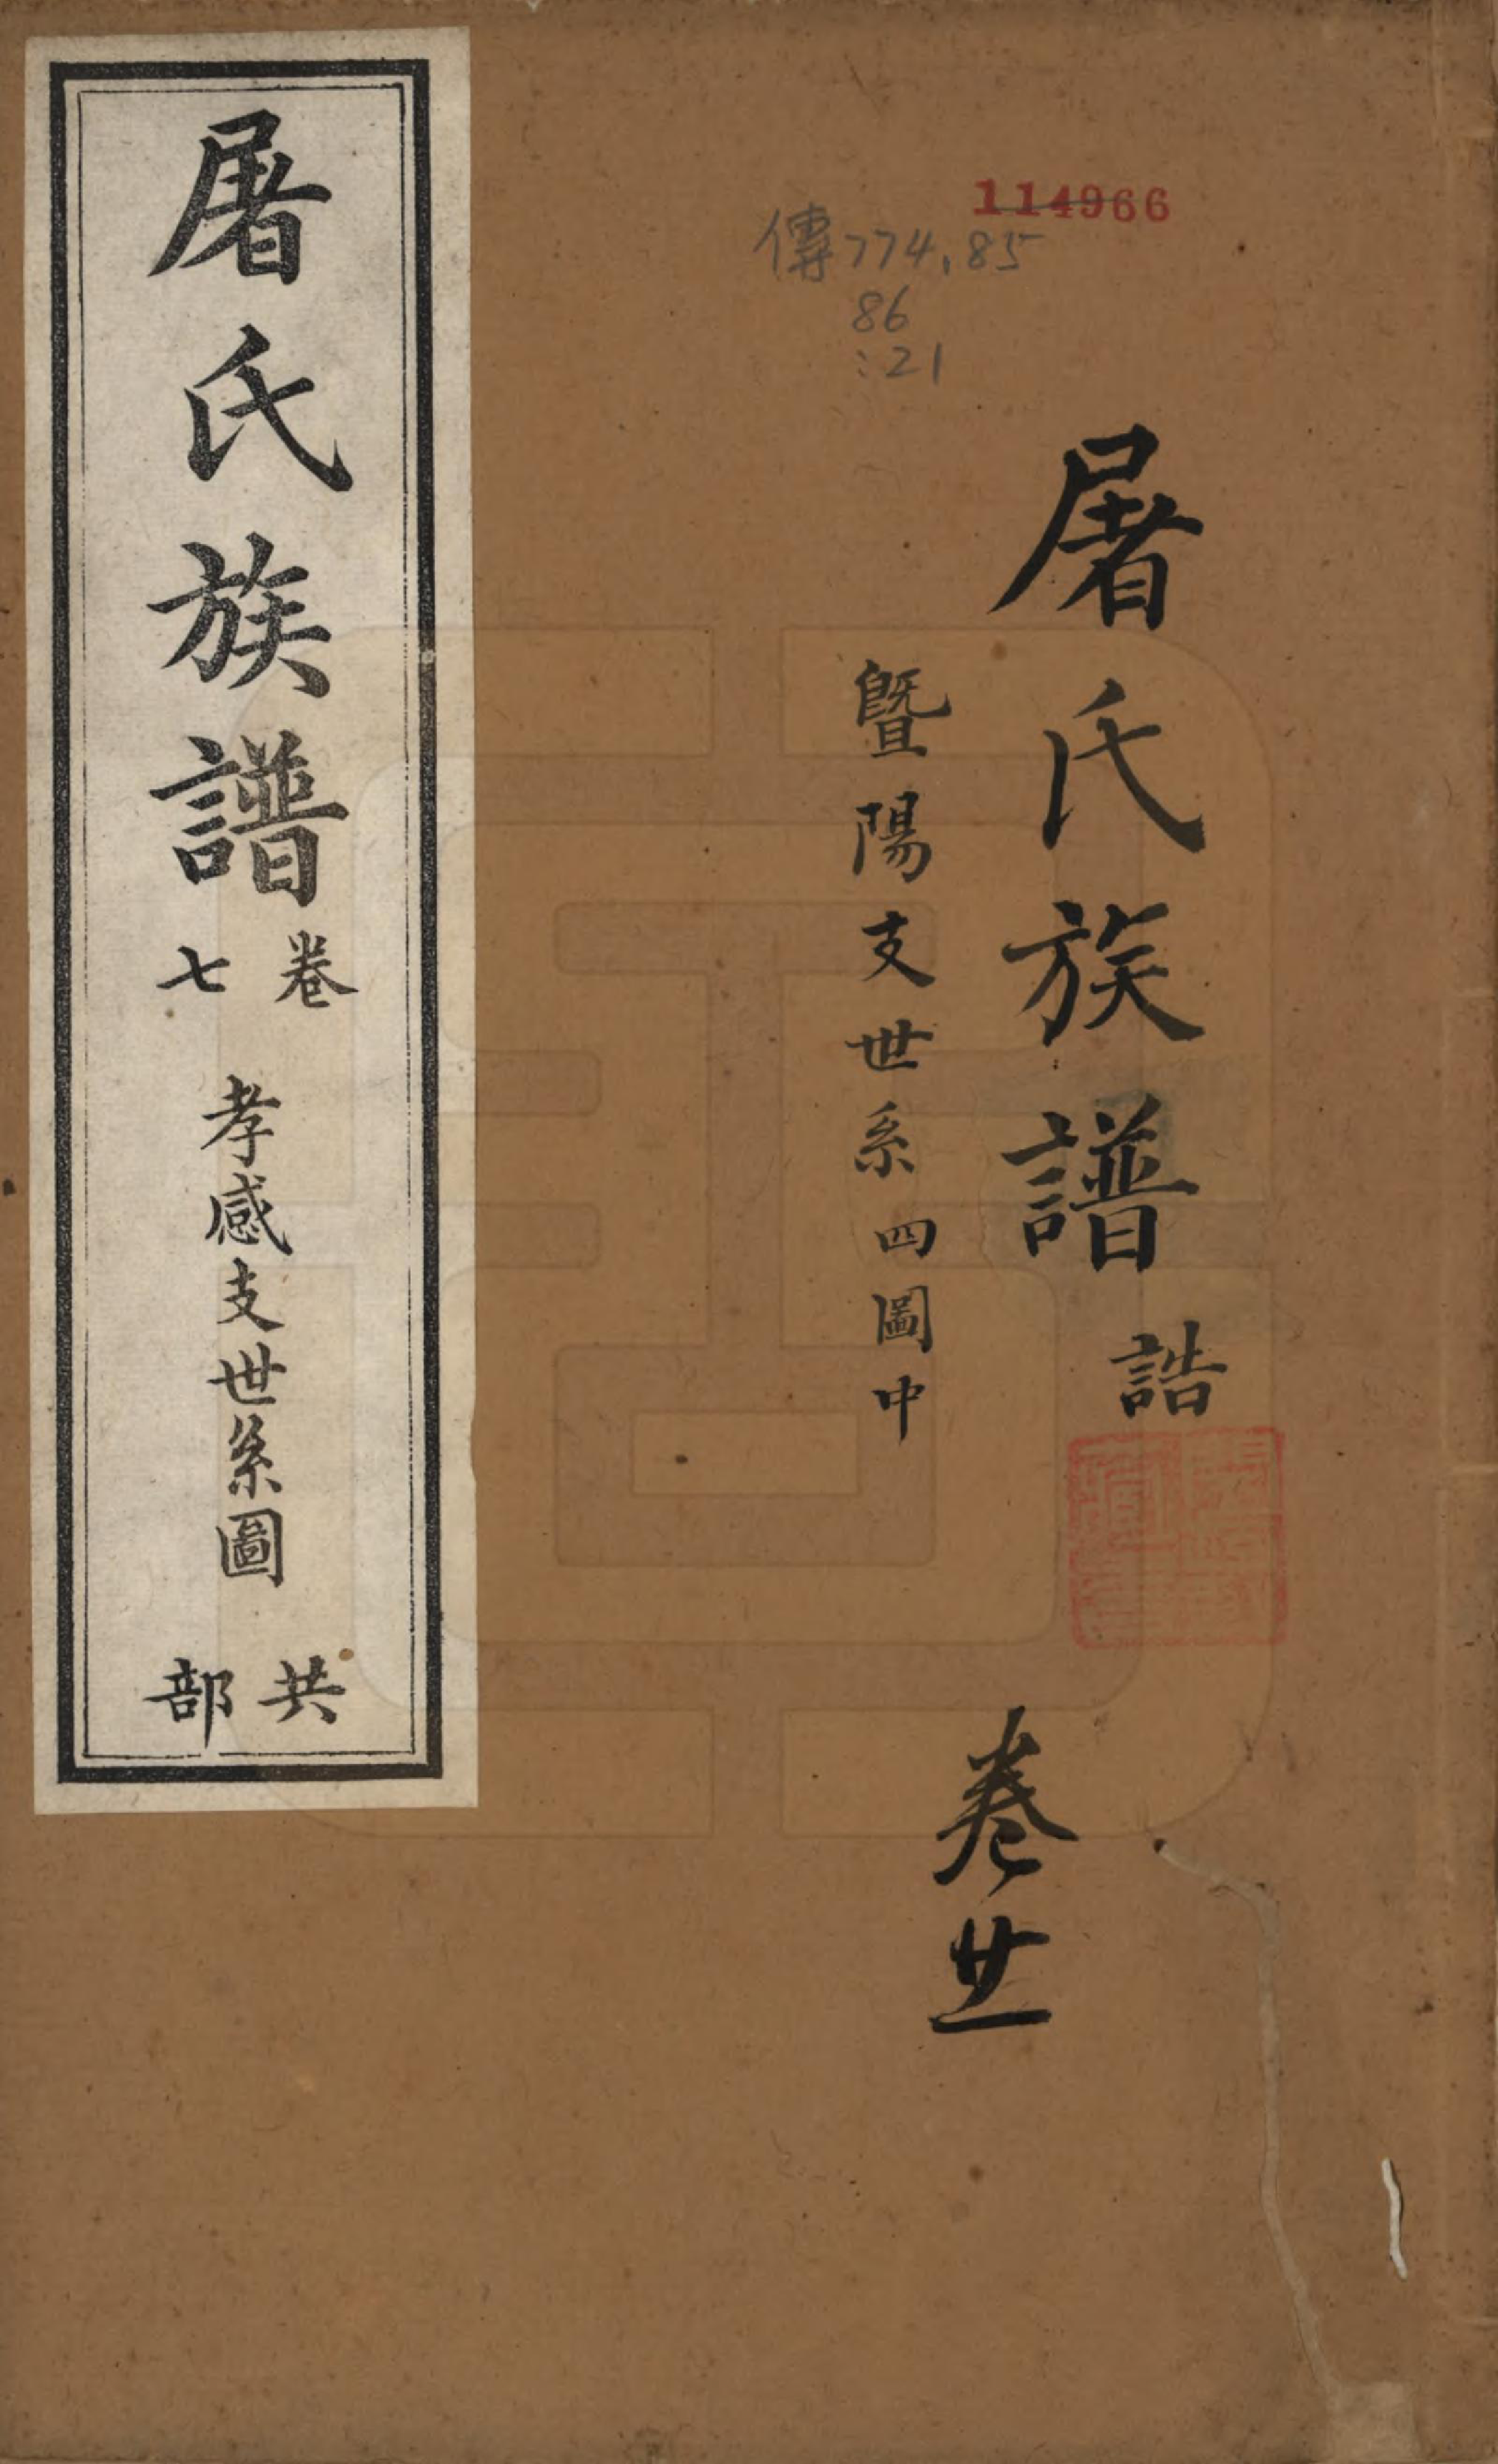 114966
傳774.85
86
:21
屠氏族譜 誥
暨陽支世系四圖中
卷廿一
屠氏族譜
卷
七
孝感支世系圖
共
部